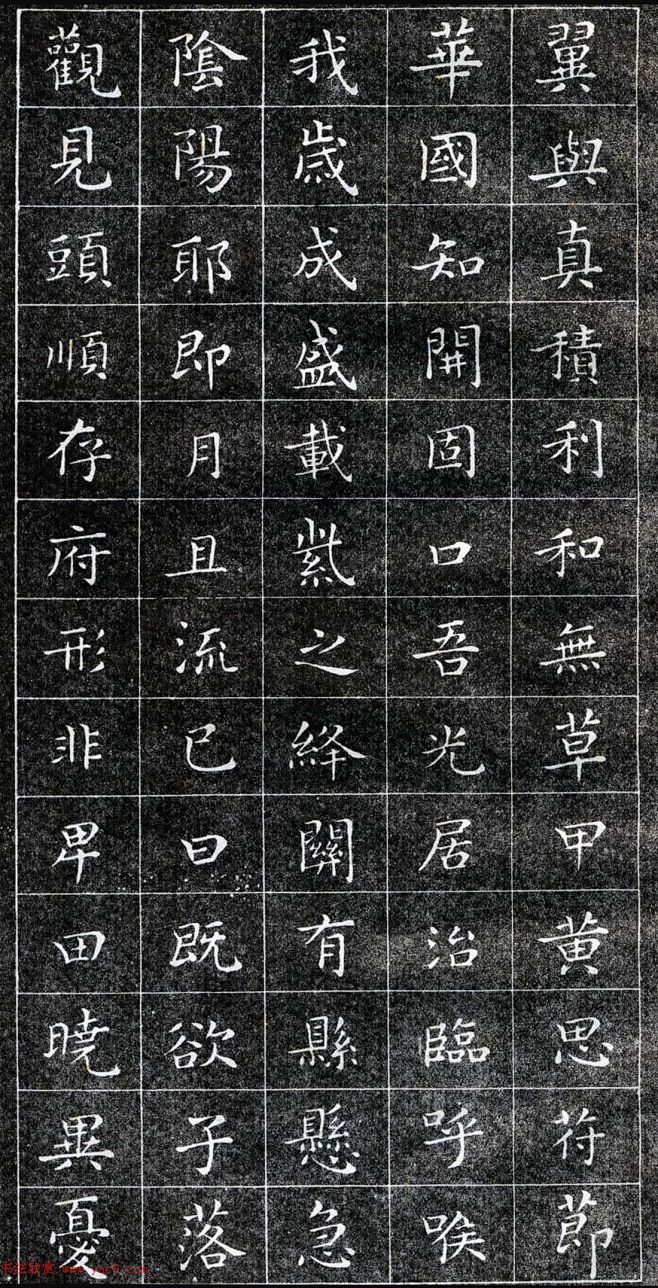 翼與真積利和無草甲黄思苻節
華國知開固口吾光居治臨呼喉
我歲成盛載紫之絳關有縣懸急
陰陽耶即月且流已曰既欲子落
觀見頭順存府形非卑田曉異憂